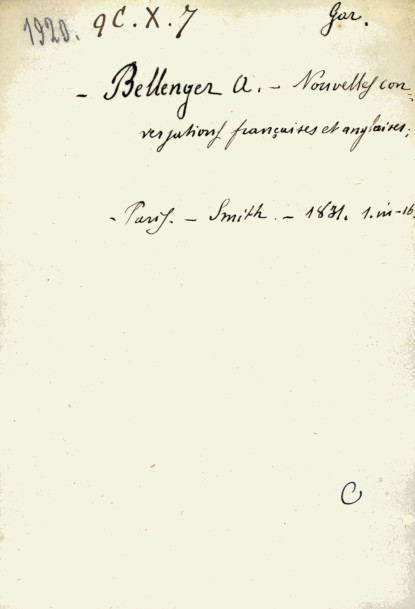 1920. 9C. X. 7 Gar.
- Bellenger A. - Nouvelles con-
versations françaises et anglaises.
- Paris. - Smith. - 1831. 1. in-16
C